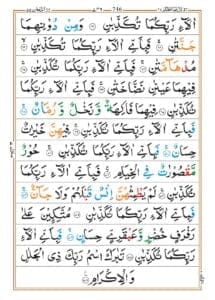 746
اٰلَآءِ رَبِّكُمَا تُكَذِّبٰنِ وَمِنْ دُوْنِهِمَا
جَنَّتٰنِ فَبِاَيِّ اٰلَآءِ رَبِّكُمَا تُكَذِّبٰنِ
مُدْهَآمَّتٰنِ فَبِاَيِّ اٰلَآءِ رَبِّكُمَا تُكَذِّبٰنِ
فِيْهِمَا عَيْنٰنِ نَضَّاخَتٰنِ فَبِاَيِّ اٰلَآءِ رَبِّكُمَا
تُكَذِّبٰنِ فِيْهِمَا فَاكِهَةٌ وَّنَخْلٌ وَّرُمَّانٌ
فَبِاَيِّ اٰلَآءِ رَبِّكُمَا تُكَذِّبٰنِ فِيْهِنَّ خَيْرٰتٌ
حِسَانٌ فَبِاَيِّ اٰلَآءِ رَبِّكُمَا تُكَذِّبٰنِ حُوْرٌ
مَّقْصُوْرٰتٌ فِي الْخِيَامِ فَبِاَيِّ اٰلَآءِ رَبِّكُمَا
تُكَذِّبٰنِ لَمْ يَطْمِثْهُنَّ اِنْسٌ قَبْلَهُمْ وَلَا جَآنٌّ
فَبِاَيِّ اٰلَآءِ رَبِّكُمَا تُكَذِّبٰنِ مُتَّكِـِٕيْنَ عَلٰى
رَفْرَفٍ خُضْرٍ وَّعَبْقَرِيٍّ حِسَانٍ فَبِاَيِّ اٰلَآءِ
رَبِّكُمَا تُكَذِّبٰنِ تَبٰرَكَ اسْمُ رَبِّكَ ذِي الْجَلٰلِ
وَالْاِكْرَامِ